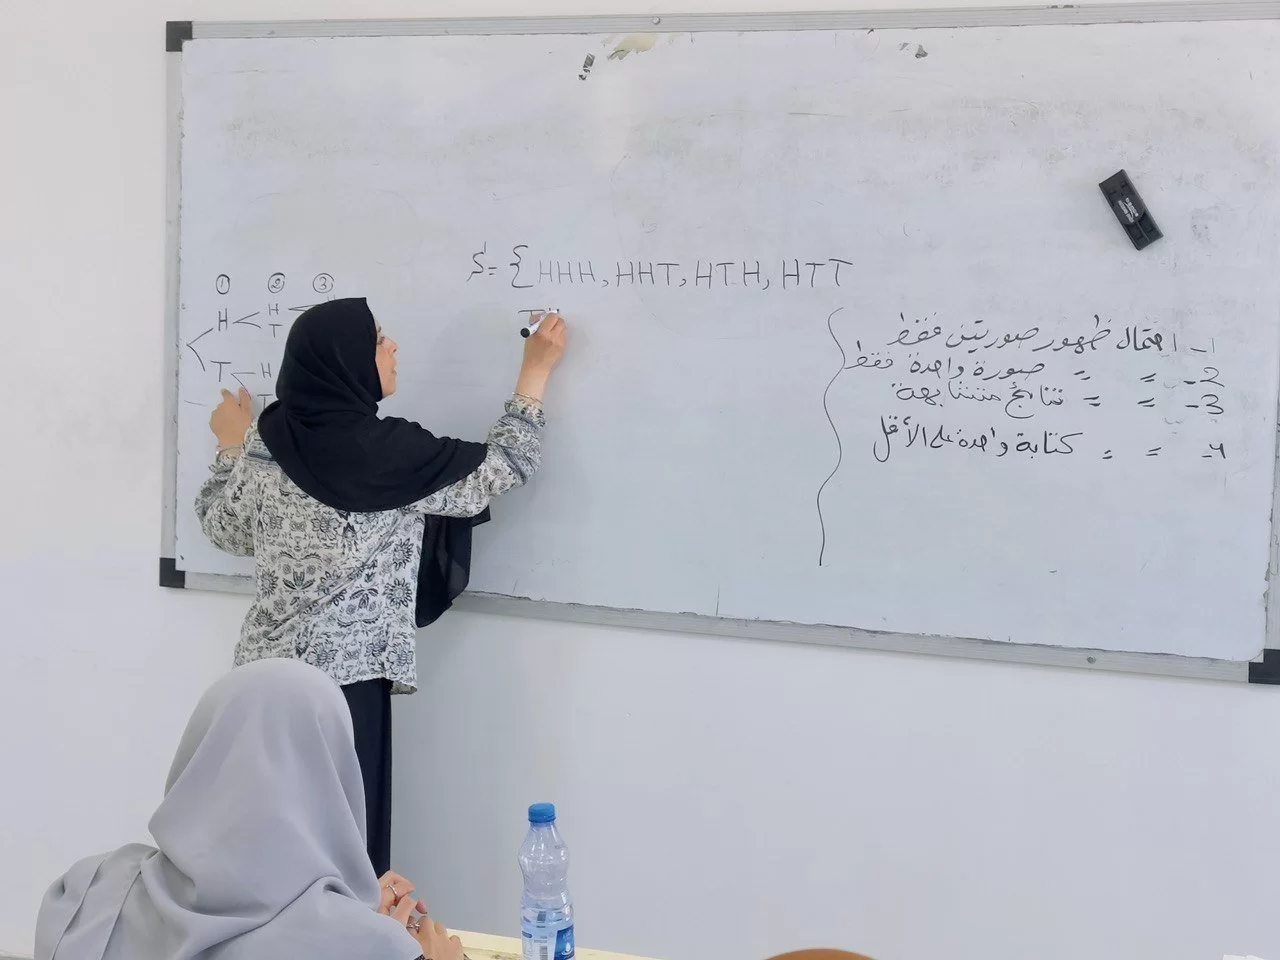 ① ② ③
H H
T
T H
T
S = { HHH, HHT, HTH, HTT
TH
1- احتمال ظهور صورتين فقط
2- " " صورة واحدة فقط
3- " " نتائج متشابهة
4- " " كتابة واحدة على الأقل